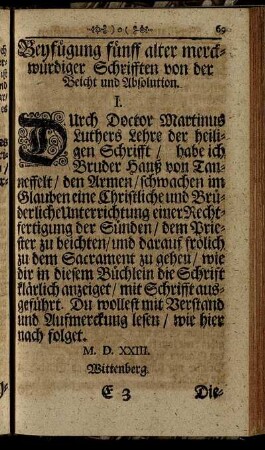 o 69
Beyfügung fünff alter merck-
würdiger Schrifften von der
Beicht und Absolution.
I.
DUrch Doctor Martinus
Luthers Lehre der heili-
gen Schrifft / habe ich
Bruder Hantz von Tan-
neffelt / den Armen / schwachen im
Glauben eine Christliche und Brü-
derliche Unterrichtung einer Recht-
fertigung der Sünden / dem Prie-
ster zu beichten / und darauf frölich
zu dem Sacrament zu gehen / wie
dir in diesem Büchlein die Schrift
klärlich anzeiget / mit Schrifft aus-
geführt. Du wollest mit Verstand
und Aufmerckung lesen / wie hier
nach folget.
M. D. XXIII.
Wittenberg.
E 3 Die-